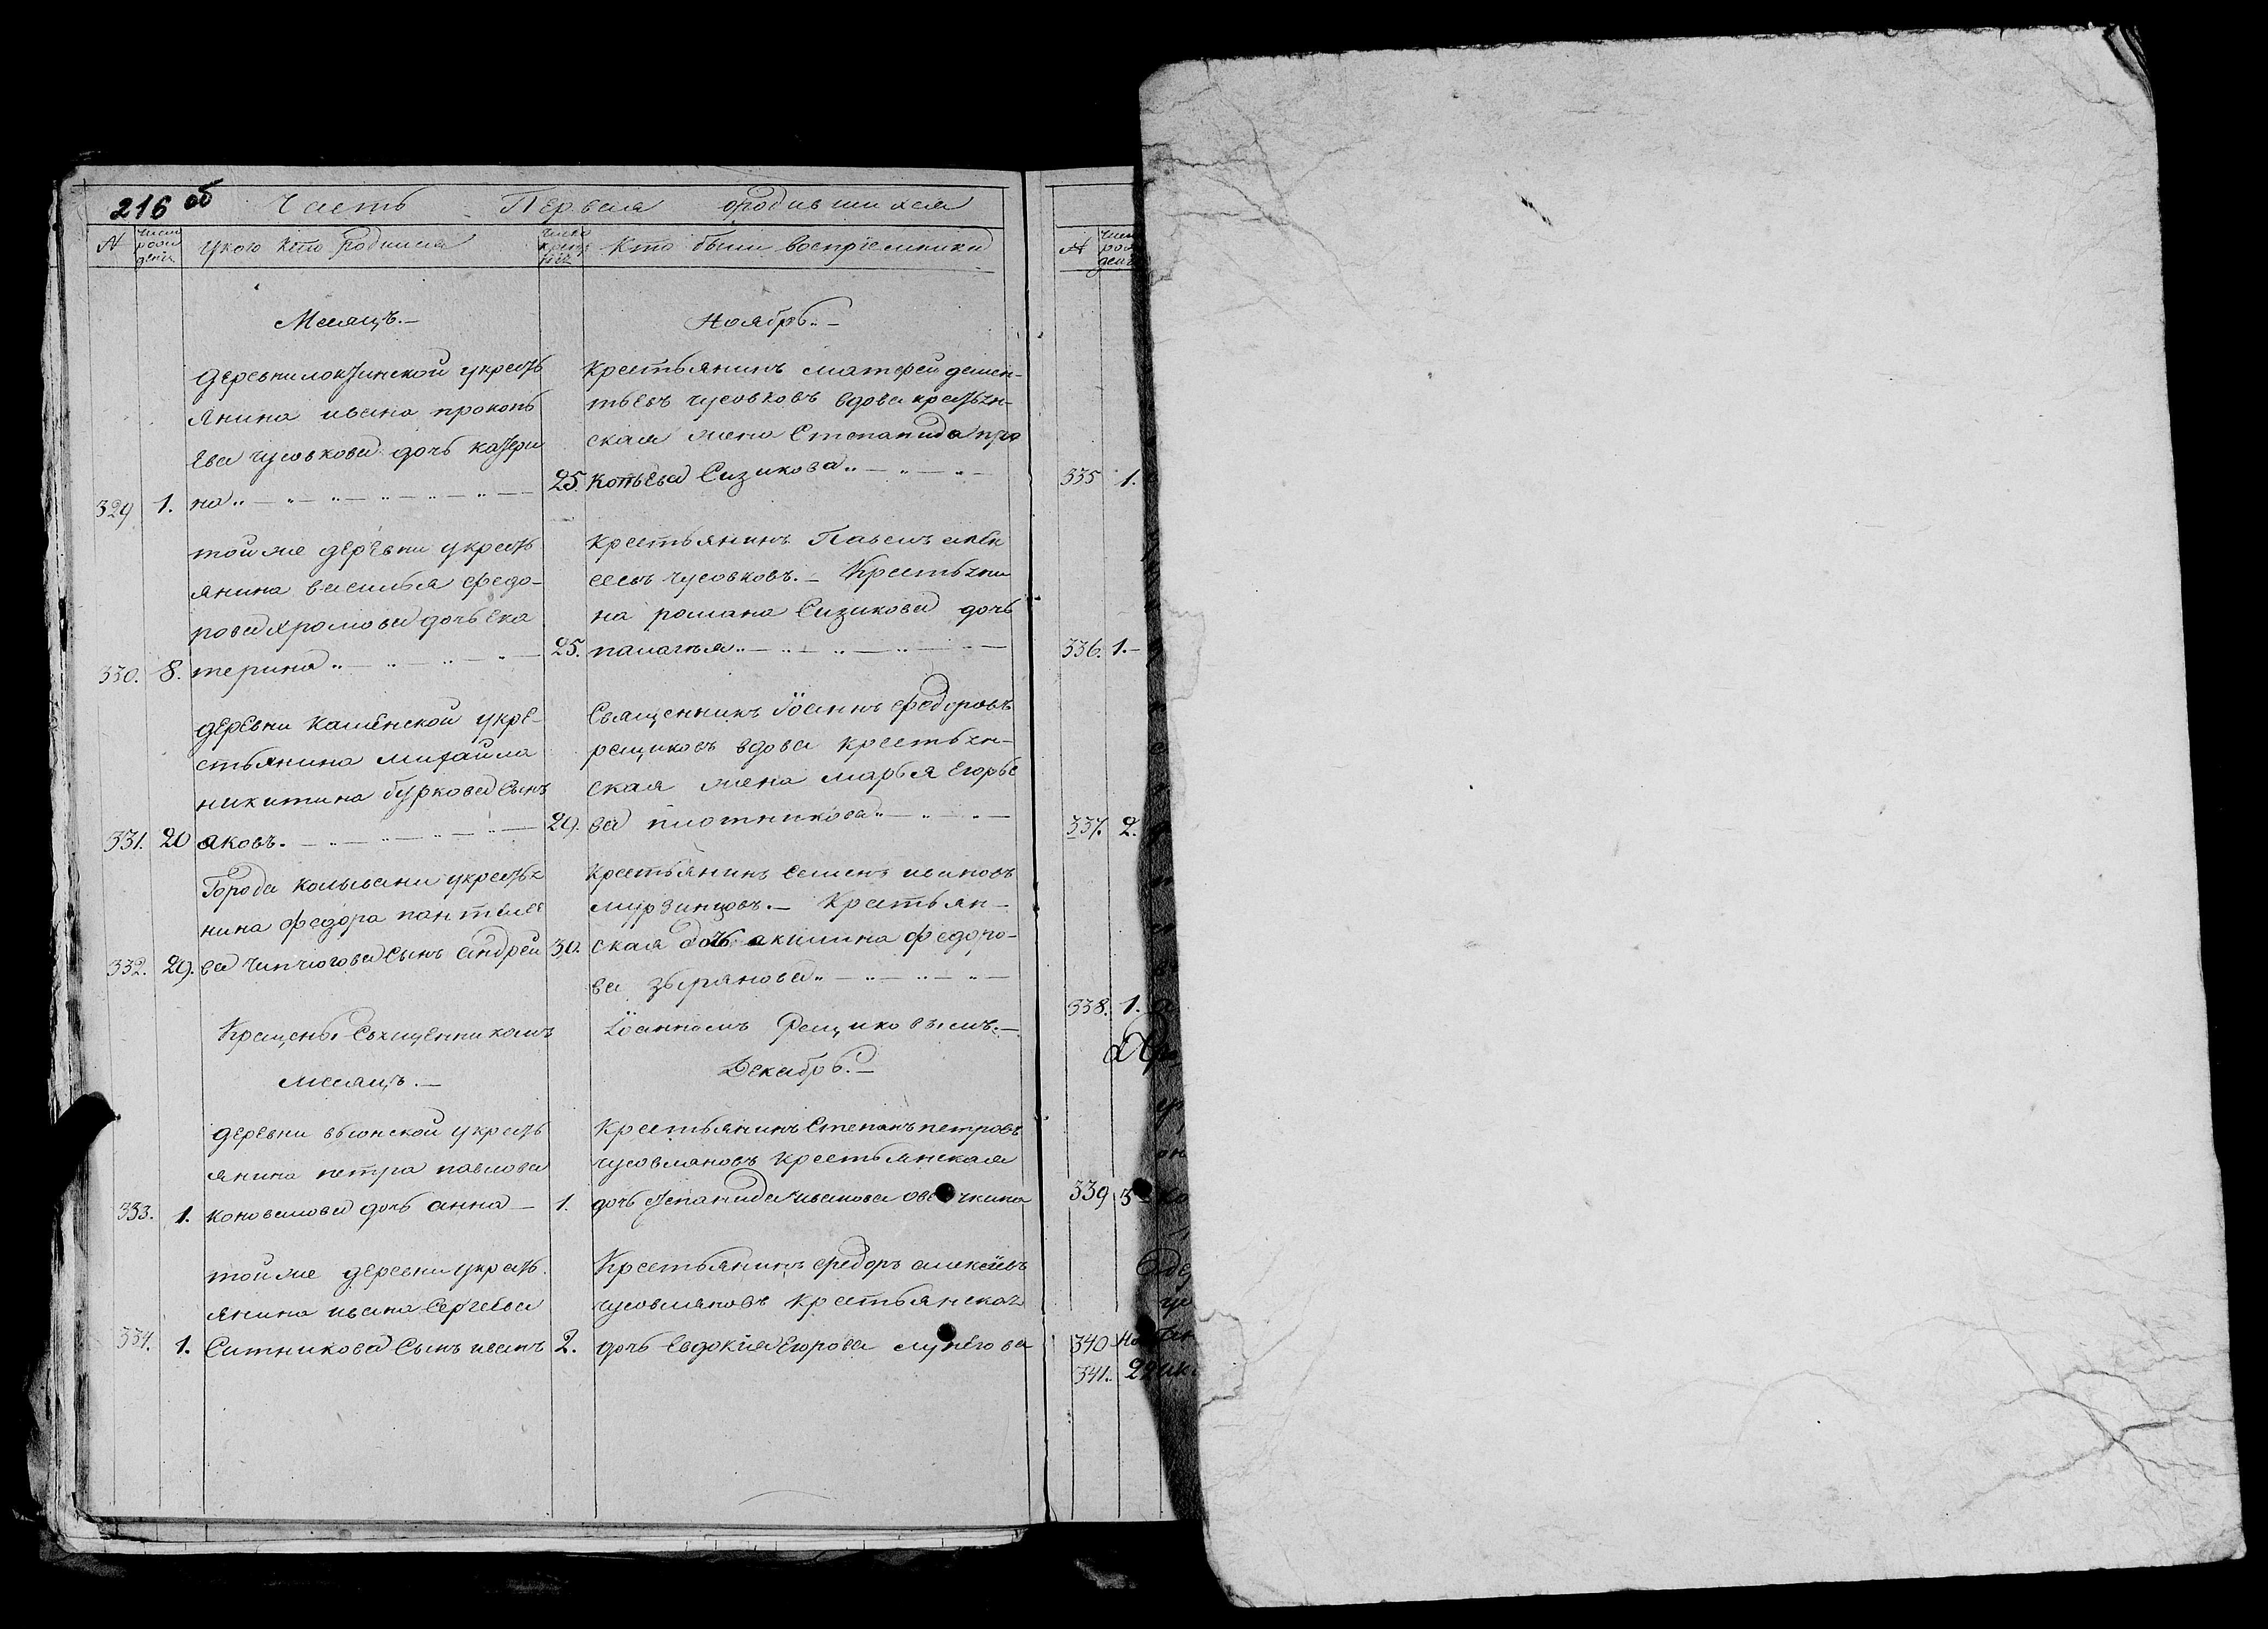 216 об Часть Первая ородившихся
№ Число рождения Укого кто родился Число крещения Кто были восприемники
Месяцъ.— Ноябрь.—
деревни локтинской укресть
янина ивана прокопь
ева чусовкова дочь катери
329 1. на
25.
крестьянинъ матфей демен-
тьевъ чусовковъ вдова крестьян-
ская жена Степанида про
копьева Сизикова
той же деревни укресть
янина василья федо-
рова хромова дочь ека
330. 8. терина
25.
крестьянинъ Павелъ алек
сеевъ чусовковъ.— Крестьяни
на романа Сизикова дочь
палагья
деревни каменской укре-
стьянина михайла
никитина буркова сынъ
331. 20 яковъ.
29.
Священникъ Іоаннъ федоровъ
рещиковъ вдова крестьян-
ская жена марья Егорье
ва плотникова
Города колывани укрестья
нина федора пантелее
332. 29. ва чипчюгова сынъ андрей
30.
крестьянинъ семенъ ивановъ
мурзинцовъ.— Крестьян-
ская дочь акилина федоро-
ва зырянова
Крещены Священникомъ Іоанномъ Рещиковымъ.—
месяцъ.— Декабрь.—
деревни вьюнской укресть
янина петра павлова
333. 1. коновалова дочь анна —
1.
Крестьянинъ Степанъ петровъ
чусовляновъ крестьянская
дочь степанида иванова овечкина
той же деревни укресть
янина ивана Сергеева
334. 1. Ситникова Сынъ иванъ
2.
Крестьянинъ федоръ алексіевъ
чусовляновъ крестьянская
дочь Евдокия Егорова
№
335 1.
336. 1.—
337. 2.
338. 1.
339 3
340
341.